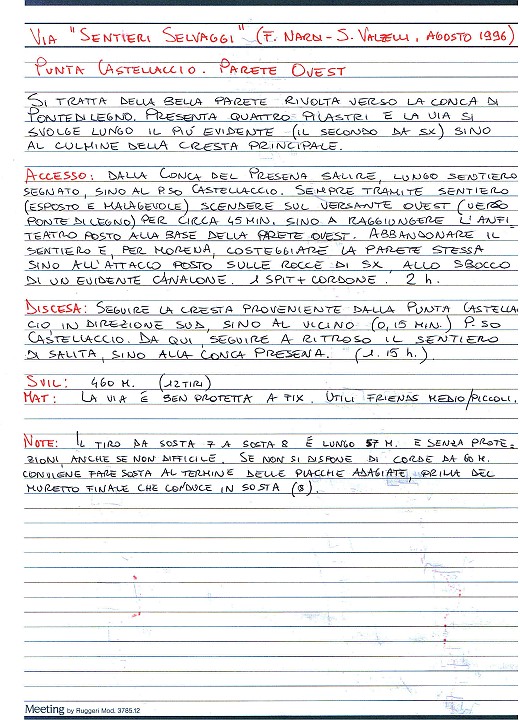 VIA "SENTIERI SELVAGGI" (F. NARDI - S. VALZELLI, AGOSTO 1996)
PUNTA CASTELLACCIO. PARETE OVEST
SI TRATTA DELLA BELLA PARETE RIVOLTA VERSO LA CONCA DI
PONTEDILEGNO. PRESENTA QUATTRO PILASTRI E LA VIA SI
SVOLGE LUNGO IL PIÚ EVIDENTE (IL SECONDO DA SX) SINO
AL CULMINE DELLA CRESTA PRINCIPALE.
ACCESSO: DALLA CONCA DEL PRESENA SALIRE, LUNGO SENTIERO
SEGNATO, SINO AL P.SO CASTELLACCIO. SEMPRE TRAMITE SENTIERO
(ESPOSTO E MALAGEVOLE) SCENDERE SUL VERSANTE OVEST (VERSO
PONTE DI LEGNO) PER CIRCA 45 MIN. SINO A RAGGIUNGERE L'ANFI
TEATRO POSTO ALLA BASE DELLA PARETE OVEST. ABBANDONARE IL
SENTIERO E, PER MORENA, COSTEGGIARE LA PARETE STESSA
SINO ALL'ATTACCO POSTO SULLE ROCCE DI SX, ALLO SBOCCO
DI UN EVIDENTE CANALONE. 1 SPIT + CORDONE. 2 h.
DISCESA: SEGUIRE LA CRESTA PROVENIENTE DALLA PUNTA CASTELLA
CIO, IN DIREZIONE SUD, SINO AL VICINO (0,15 MIN.) P.SO
CASTELLACCIO. DA QUI, SEGUIRE A RITROSO IL SENTIERO
DI SALITA, SINO ALLA CONCA PRESENA. (1.15 h.)
SVIL: 460 M. (12 TIRI)
MAT: LA VIA É BEN PROTETTA A FIX. UTILI FRIENDS MEDIO/PICCOLI.
NOTE: IL TIRO DA SOSTA 7 A SOSTA 8 É LUNGO 57 M. E SENZA PROTE-
ZIONI, ANCHE SE NON DIFFICILE. SE NON SI DISPONE DI CORDE DA 60 M.
CONVIENE FARE SOSTA AL TERMINE DELLE PLACCHE ADAGIATE, PRIMA DEL
MURETTO FINALE CHE CONDUCE IN SOSTA (8).
Meeting by Ruggeri Mod. 3785.12